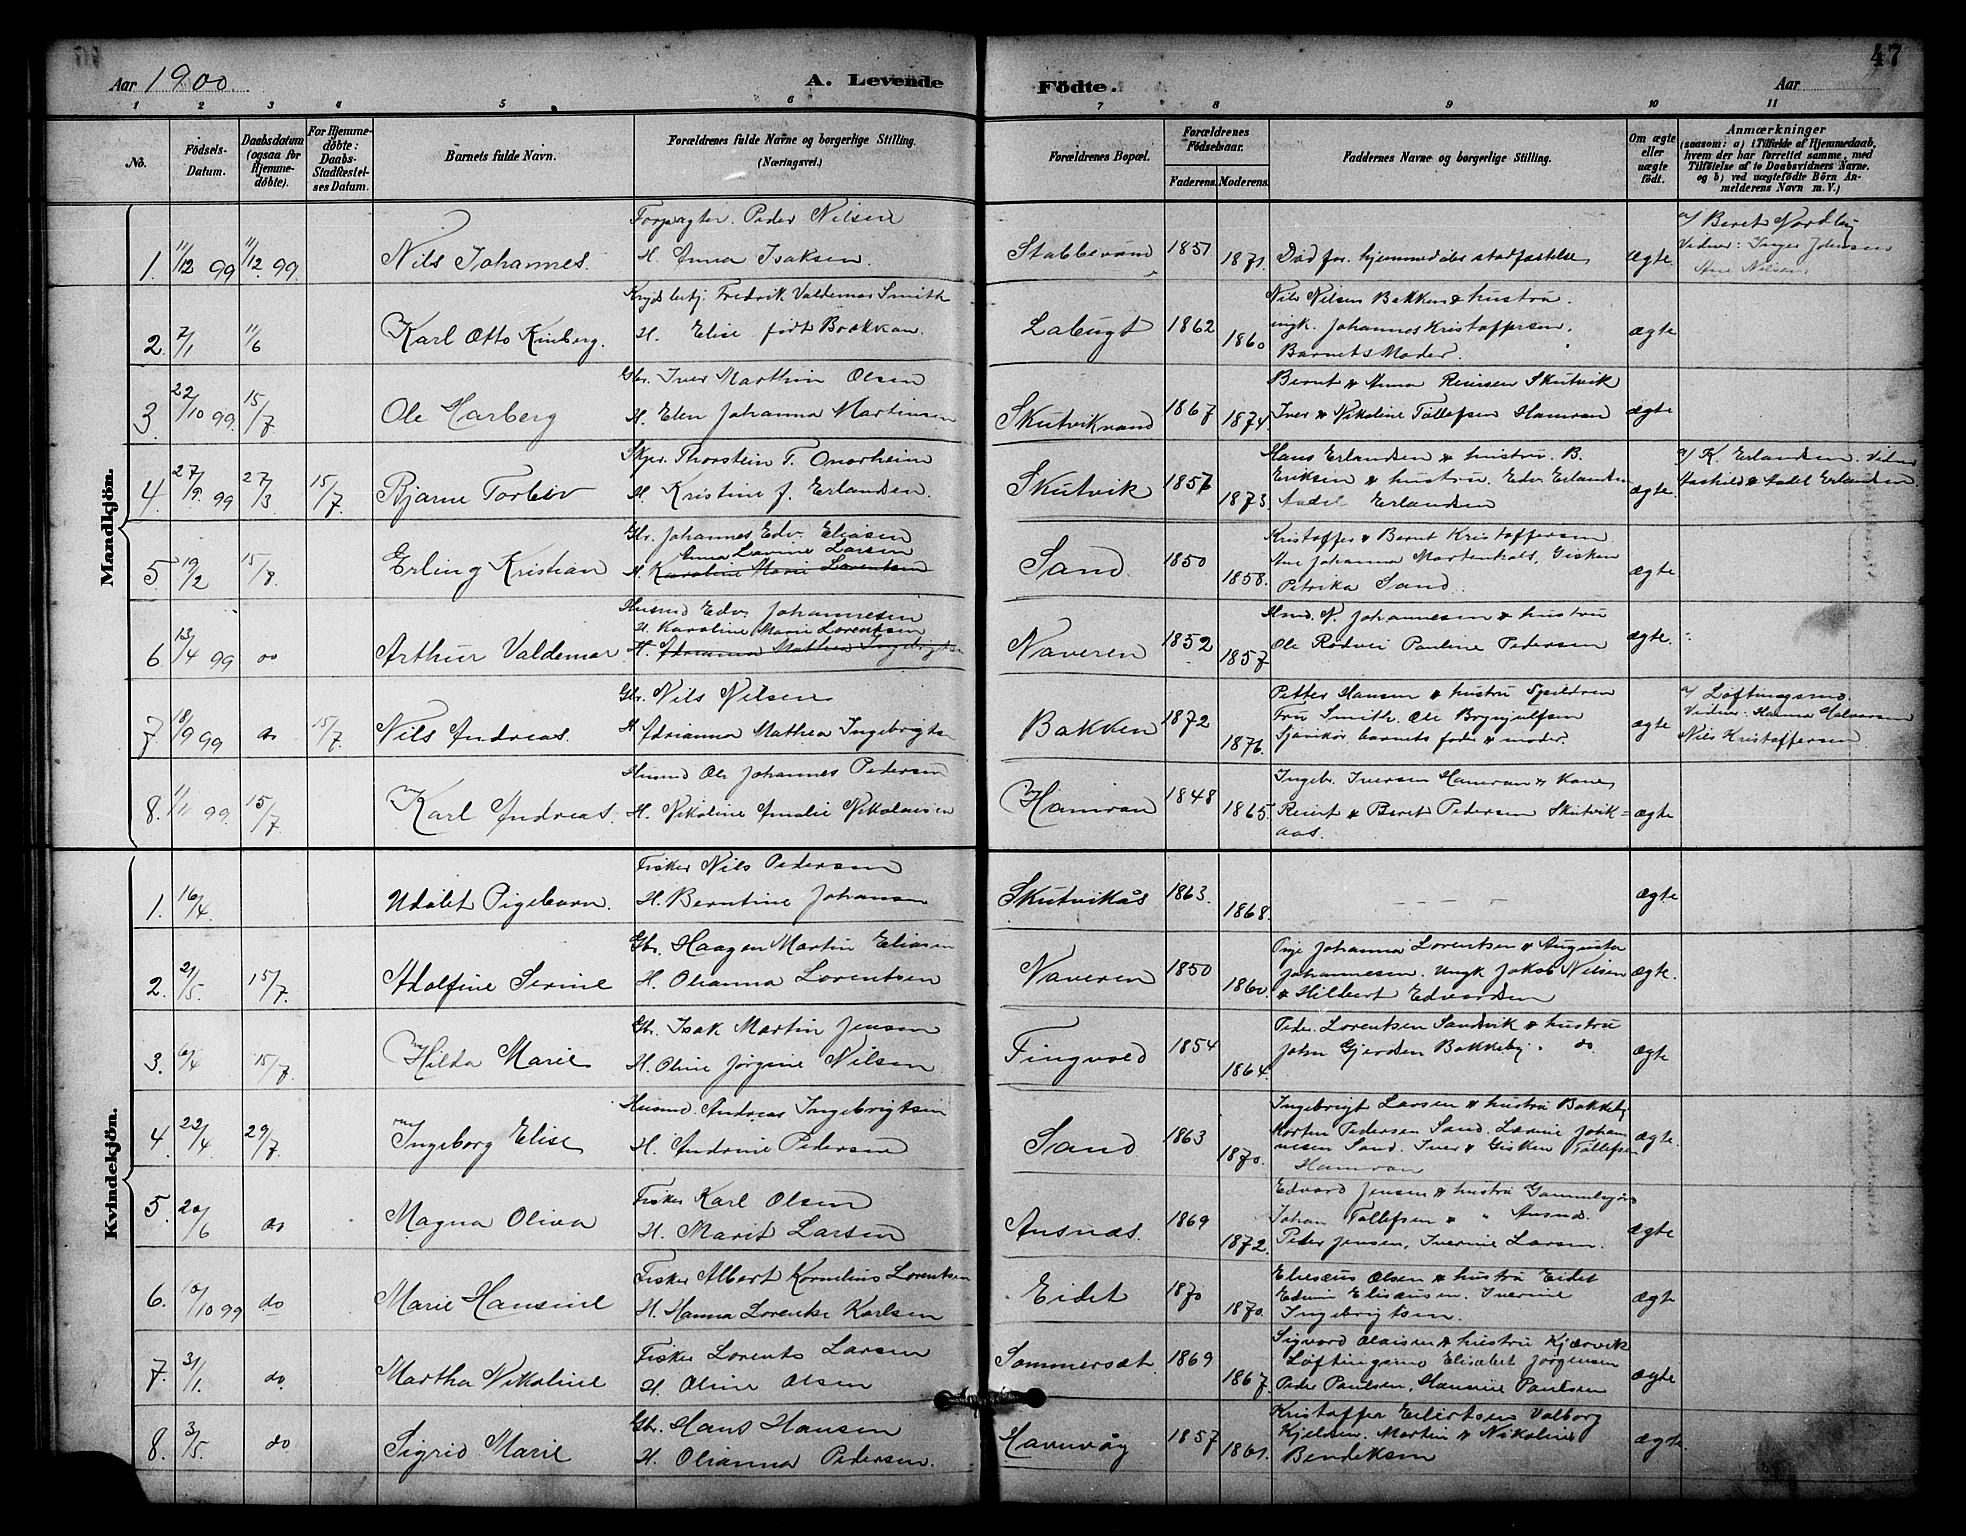 47
Aar 1900.
A. Levende
Födte.
Aar
1 2 3 4 5 6 7 8 9 10 11
No.
Födsels-Datum.
Daabsdatum (ogsaa for Hjemmedöbte).
For Hjemmedöbte: Daabs-Stadfæstelses Datum.
Barnets fulde Navn.
Forældrenes fulde Navne og borgerlige Stilling. (Næringsvei.)
Forældrenes Bopæl.
Forældrenes Födselsaar.
Faderens. Moderens.
Faddernes Navne og borgerlige Stilling.
Om ægte eller uægte födt.
Anmærkninger
(saasom: a) i Tilfælde af Hjemmedaab, hvem der har forrettet samme, med Tilföielse af to Daabsvidners Navne, og b) ved uægtefödte Börn Anmelderens Navn m. V.)
Mandkjön.
1. 11/12 99 11/12 99. Nils Johannes.
Forpagter. Peder Nilsen
H. Anna Isaksen.
1851 1871.
Død før hjemmedåbs stadfæstelse
Ægte.
a/ Beret Nordby
Vidner: Inger Johnsen
Ane Nilsen
2. 7/1 11/6 Karl Otto Kinberg.
Fredrik Valdemar Smith
H. Elise født Brækkan.
Labugt 1862 1860
Nils Nilsen Bakken & hustru.
ungk. Johannes Kristoffersen.
Barnets Moder.
ægte
3. 22/10 99. 15/7. Ole Harberg
Gbr. Iver Marthin Olsen
H. Elen Johanna Martinsen
Skutvikvand 1867 1874
Bernt & Anna Reiersen Skutvik
Iver & Nikoline Tollefsen Hamran
ægte
4. 27/9 99 27/3 15/7. Bjarne Torleiv
Skpr. Thorstein T. Onarheim
H. Kristine f. Erlandsen.
Skutvik 1856 1873.
Hans Erlandsen & hustru. B.
Eriksen & hustru. Edv. Erlandsen
Aadel Erlandsen
ægte
a/ K. Erlandsen. Vidner
Aashild & Aadel Erlandsen
5. 19/2 15/8. Erling Kristian
Gbr. Johannes Edv. Eliasen
Anna Lovine Larsen
H. Karoline Marie Lorentsen
Sand. 1850 1858.
Kristoffer & Bernt Kristoffersen.
Ane Johanna Mortenhals, Gisken
Petrika Sand.
ægte
6 13/4 99 do Arthur Valdemar
Husmd Edv. Johannesen
H. Karoline Marie Lorentsen
H. Adrianna Mathea Ingebrigtsen
Naveren 1852 1857
Husd. N. Johannesen & hustru
Ole Rødvei Pauline Pedersen
ægte.
7. 18/9 99 do 15/7. Nils Andreas.
Gbr. Nils Nilsen
H. Adrianna Mathea Ingebrigtsen
Bakken 1872 1876.
Petter Hansen & hustru
Fru Smith. Ole Brynjulfsen
barnets fader & moder.
ægte
a/ Løftingsmo.
Vidner: Hanna Halvorsen
Nils Kristoffersen.
8. 1/1 99. 15/7. Karl Andreas.
Husmd Ole Johannes Pedersen
H. Nikoline Amalie Nikolaisen
Hamran 1848 1865.
Ingebr. Iversen Hamran & Kone
Reiert & Beret Pedersen Skutvik-
aas.
ægte
Kvindekjön.
1. 16/4. Udøbt Pigebarn.
Fisker Nils Pedersen
H. Berntine Johansen
Skutvikås 1863. 1868.
ægte
2. 21/5. 15/7. Adolfine Serine
Gbr. Haagen Martin Eliasen
H. Olianna Lorentsen
Naveren 1850 1860.
Pige Johanna Lorentsen & Augusta
Johannesen. Ungk Jakob Nilsen
& Hilbert Edvardsen
ægte.
3. 6/4 15/7. Hilda Marie
Gbr. Isak Martin Jensen
H. Oline Jørgine Nilsen
Fingvold 1854 1864.
Peder Lorentsen Sandvik & hustru
John Gjerdsen Bakkeby. do.
ægte
4. 22/4 29/7. Ingeborg Elise
Husmd. Andreas Ingebrigtsen
H. Andrine Pedersen
Sand 1863 1870.
Ingebrigt Larsen & hustru Bakkeby
Morten Pedersen Sand. Lovine Johan-
nesen Sand. Iver & Gisken Tollefsen
Hamran
ægte.
5. 20/6 do Magna Oliva
Fisker Karl Olsen
H. Marit Larsen
Ansnæs. 1869 1872.
Edvard Jensen & hustru
Johan Tollefsen & " Ansnæs.
Peder Jensen, Iverine Larsen.
ægte
6. 10/10 99 do Marie Hansine
Fisker Albert Kornelius Lorentsen
H. Hanna Lorentse Karlsen
Eidet 1870 1870.
Elisæus Olsen & hustru Eidet
Edvin Elisæusen. Iverine
Ingebrigtsen.
ægte
7. 31/1. do. Martha Nikoline
Fisker Lorents Larsen
H. Oline Olsen
Sommersæt. 1869 1867.
Sigvard Olaisen & hustru Kjærvik
Løftingsmo Elisabet Jørgensen
Peder Paulsen, Hansine Paulsen
ægte
8. 3/5. do Sigrid Marie
Gbr. Hans Hansen
H. Olianna Pedersen.
Havnvåg 1857 1861.
Kristoffer Eilertsen Valborg
Kjelsen. Martin & Nikoline
Bendiksen
ægte.